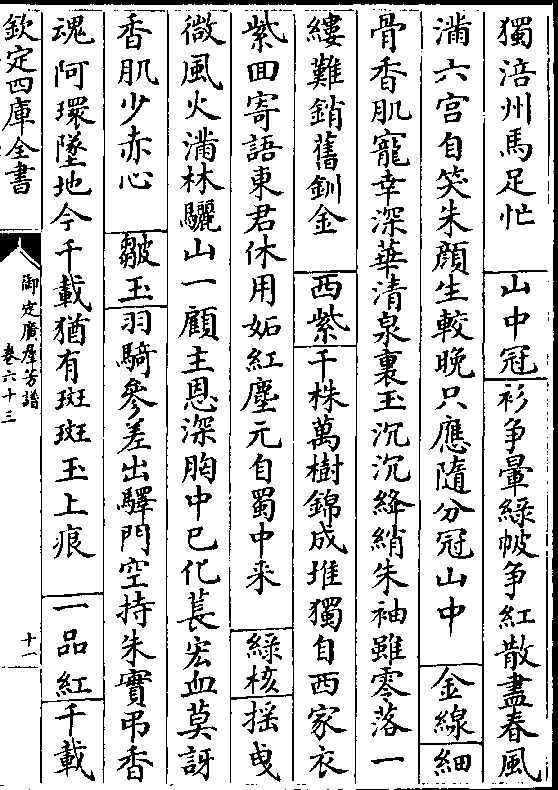 獨涪州馬足忙　山中冠　衫爭暈綠帔爭紅散盡春風
滿六宫自笑朱顔生較晚只應隨分冠山中　金線　細
骨香肌寵幸深華清泉裏玉沉沉絳綃朱袖雖零落一
縷難銷舊釧金　西紫　千株萬樹錦成堆獨自西家衣
紫囬寄語東君休用妬紅塵元自蜀中來　綠核　揺曳
微風火滿林驪山一顧主恩深胸中已化萇宏血莫訝
香肌少赤心　皺玉　羽騎參差出驛門空持朱實弔香
魂阿環墜地今千載猶有斑斑玉上痕　一品紅　千載
欽定四庫全書
御定廣羣芳譜
卷六十三
十一